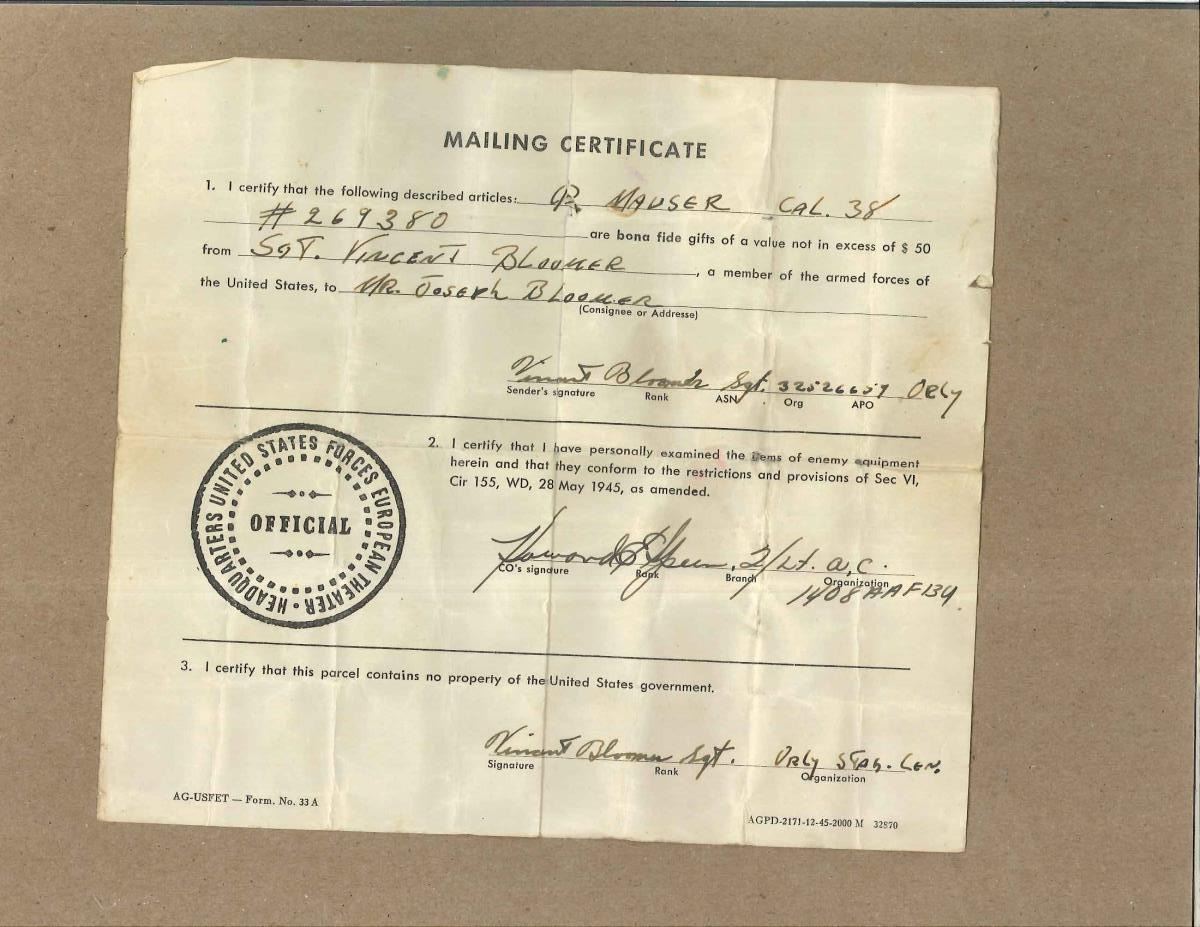 MAILING CERTIFICATE
1. I certify that the following described articles: MAUSER CAL. 38
#269380 are bona fide gifts of a value not in excess of $ 50
from SGT. VINCENT BLOOMER, a member of the armed forces of
the United States, to MR. JOSEPH BLOOMER
(Consignee or Addresse)
Vincent Bloomer Sgt. 32526657 ORLY
Sender's signature Rank ASN Org APO
2. I certify that I have personally examined the items of enemy equipment
herein and that they conform to the restrictions and provisions of Sec VI,
Cir 155, WD, 28 May 1945, as amended.
HEADQUARTERS UNITED STATES FORCES EUROPEAN THEATER •
OFFICIAL
Howard 2/Lt. a.c.
CO's signature Rank Branch Organization
1408 AAF BU
3. I certify that this parcel contains no property of the United States government.
Vincent Bloomer Sgt. ORLY STAG. CEN.
Signature Rank Organization
AG-USFET — Form. No. 33 A
AGPD-2171-12-45-2000 M 32870